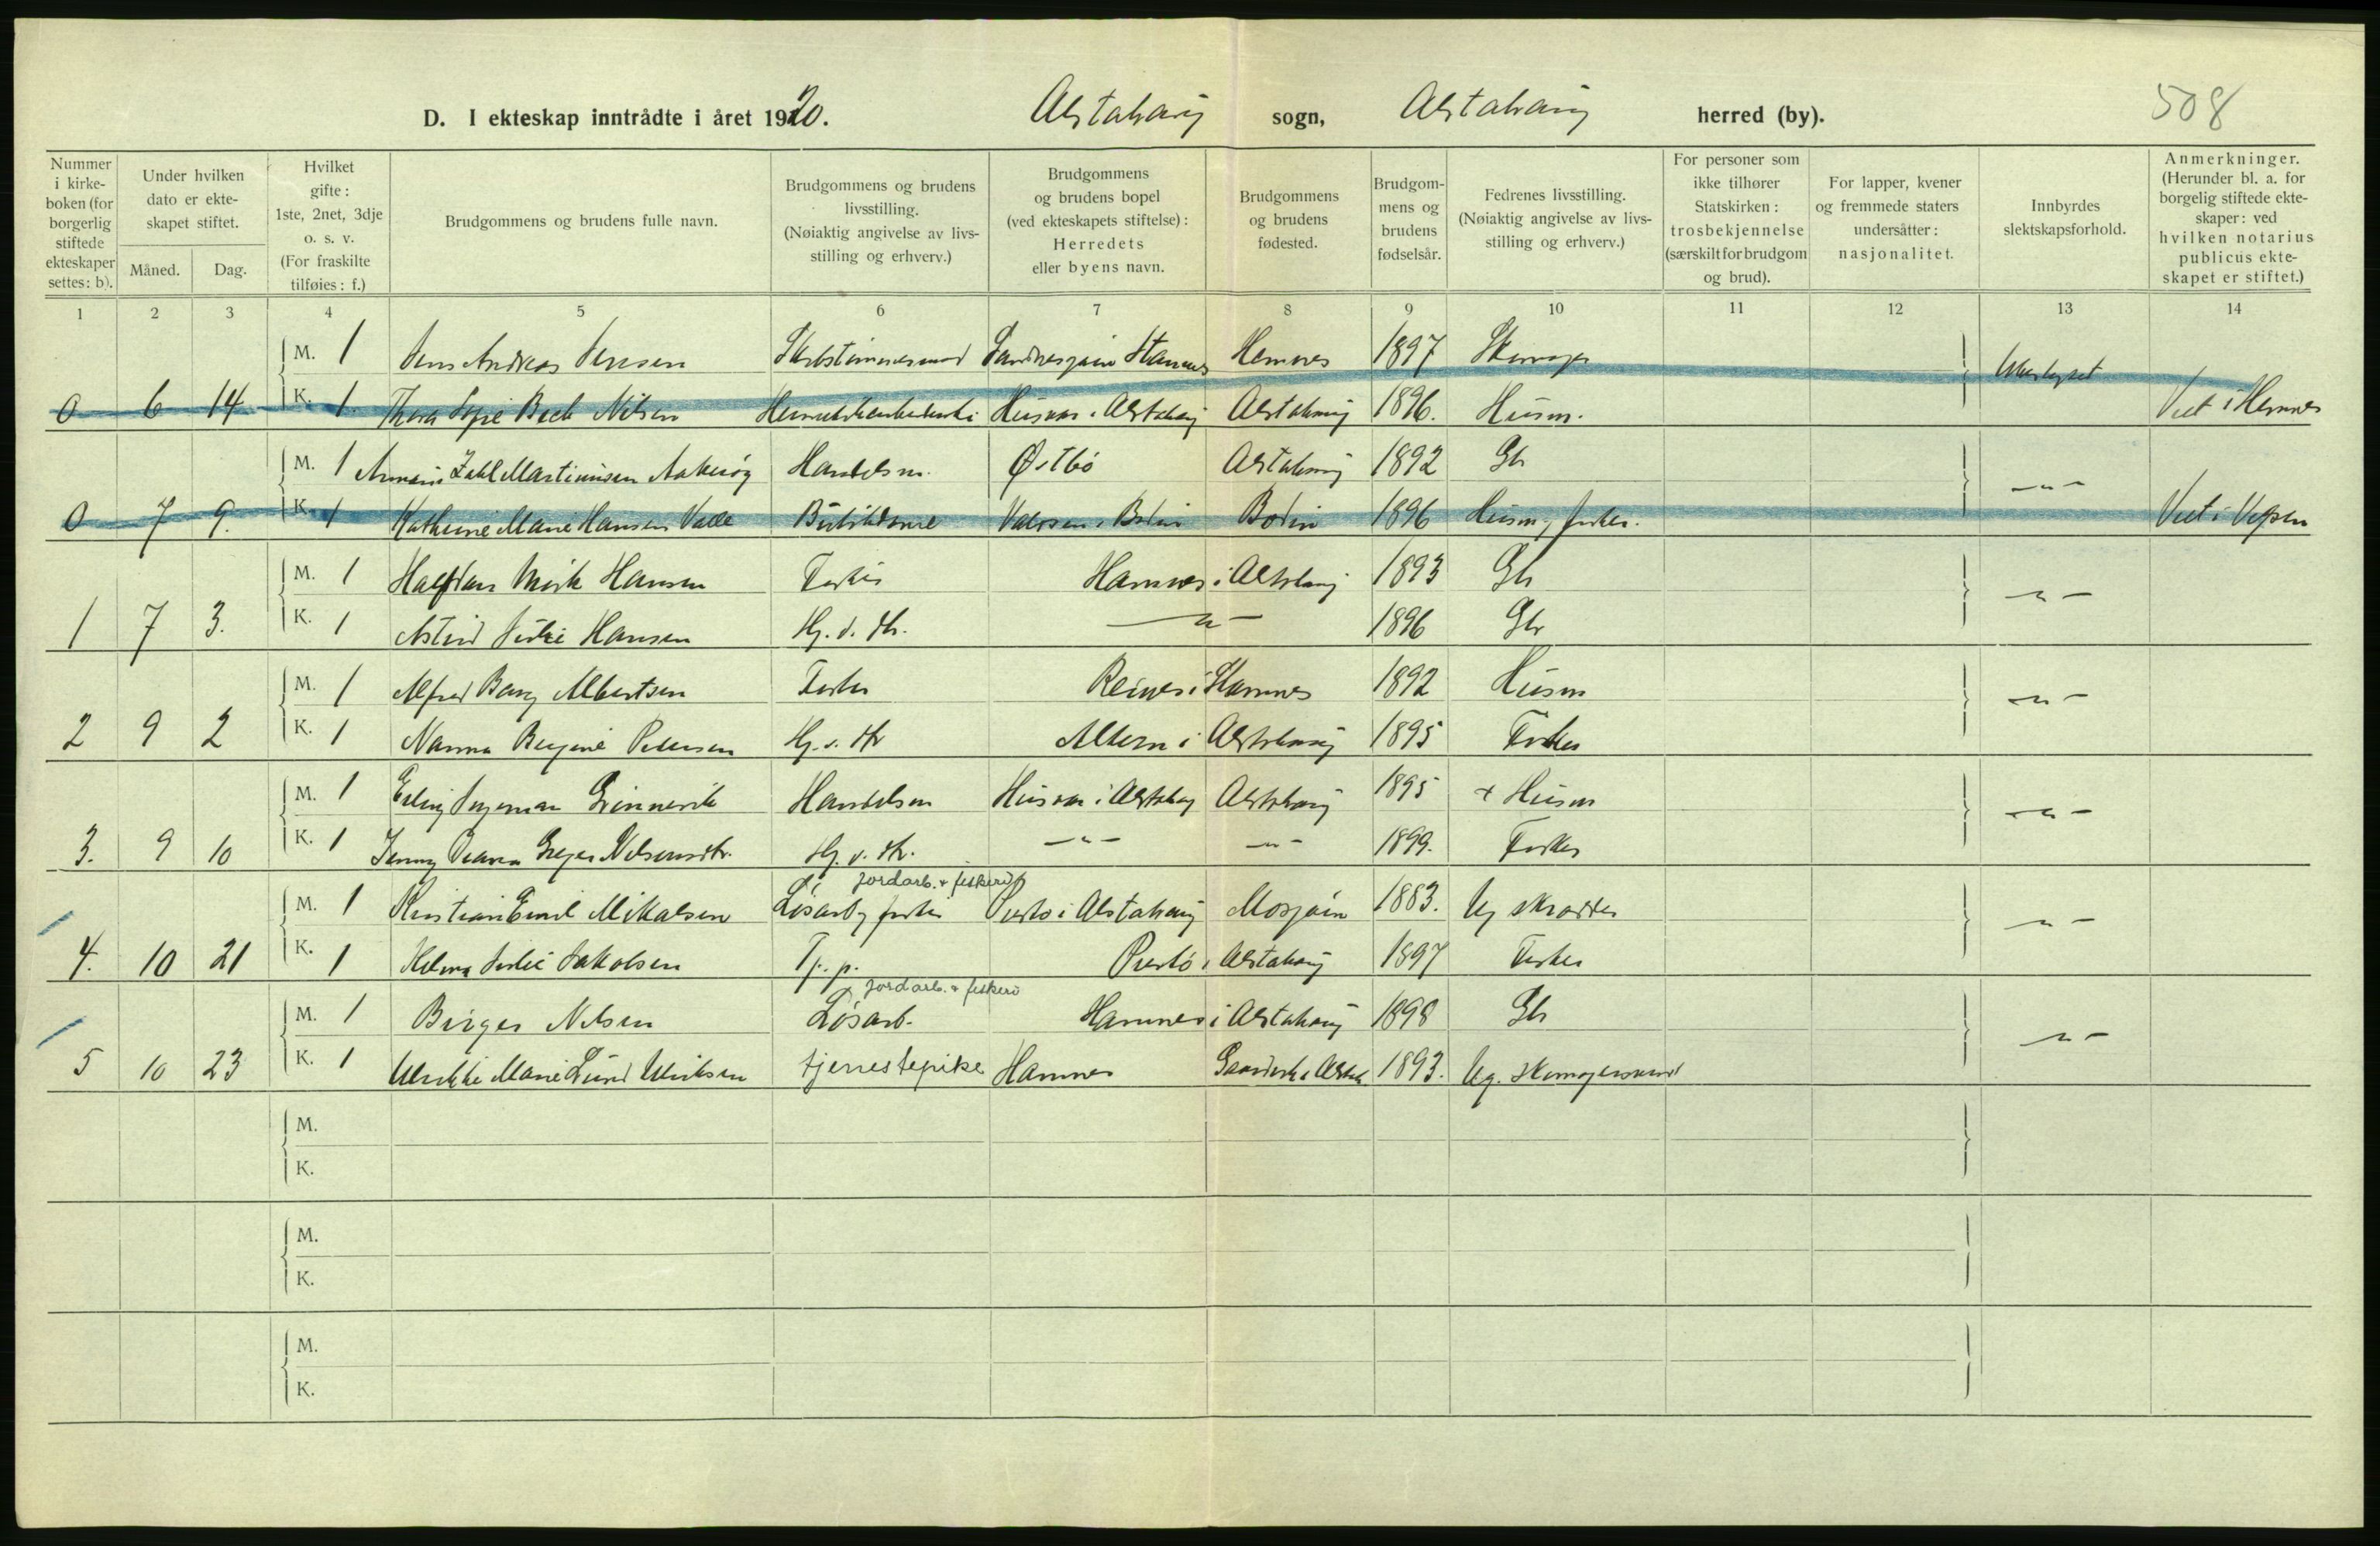 D. I ekteskap inntrådte i året 1920. Alstahaug sogn, Alstahaug herred (by). 508
Nummer i kirkeboken (for borgerlig stiftede ekteskaper settes: b).
Under hvilken dato er ekteskapet stiftet.
Måned. Dag.
Hvilket gifte: 1ste, 2net, 3dje o. s. v. (For fraskilte tilføies: f.)
Brudgommens og brudens fulle navn.
Brudgommens og brudens livsstilling. (Nøiaktig angivelse av livsstilling og erhverv.)
Brudgommens og brudens bopel (ved ekteskapets stiftelse): Herredets eller byens navn.
Brudgommens og brudens fødested.
Brudgommens og brudens fødselsår.
Fedrenes livsstilling. (Nøiaktig angivelse av livsstilling og erhverv.)
For personer som ikke tilhører Statskirken: trosbekjennelse (særskilt for brudgom og brud).
For lapper, kvener og fremmede staters undersåtter: nasjonalitet.
Innbyrdes slektskapsforhold.
Anmerkninger. (Herunder bl. a. for borgelig stiftede ekteskaper: ved hvilken notarius publicus ekteskapet er stiftet.)
1 2 3 4 5 6 7 8 9 10 11 12 13 14
M. 1 Jens Andreas Jensen Hemnes 1897
0 6 14 K. 1 Thora Sofie Bech Nilsen Husvær i Alstahaug Alstahaug 1896. Husm. Viet i Hemnes
M. 1 Zahl Martinusen Handelsm. Østbö Alstahaug 1892 Gbr
0 7 9. K. 1 Kathrine Marie Hansen Valle i Bodin Bodin 1896 Husm, fisker. Viet i Vefsen
M. 1 Halfdan Mörk Hansen Fisker Hamnes i Alstahaug 1893 Gbr
1 7 3. K. 1 Astrid Hansen Hj. v. str. — " — 1896 Gbr — " —
M. 1 Alfred Bang Albertsen Fisker Reines i Stamnes 1892 Husm
2 9 2 K. 1 Nanna Bergine Pedersen Hj. v. str Altern i Alstahaug 1895 Fisker — " —
M. 1 Erling Ingeman Handelsm Husvær i Alstahaug Alstahaug 1895 + Husm
3. 9 10 K. 1 Jenny Nilsensdtr. Hj. v. str. — " — — " — 1899. Fisker — " —
jordarb. + fiskeri
M. 1 Kristian Emil Mikalsen Lösarb og fisker i Alstahaug Mosjöen 1883. Ug skrædder
4. 10 21 K. 1 Helma Jakobsen Tj. p. Prestö i Alstahaug 1897 Fisker — " —
jordarb. + fiskeri
M. 1 Birger Nilsen Lösarb. Hamnes i Alstahaug 1898 Gbr
5 10 23 K. 1 Ulrikke Marie Lund Ulriksen tjenestepike Hamnes 1893. Ug. — " —
M.
K.
M.
K.
M.
K.